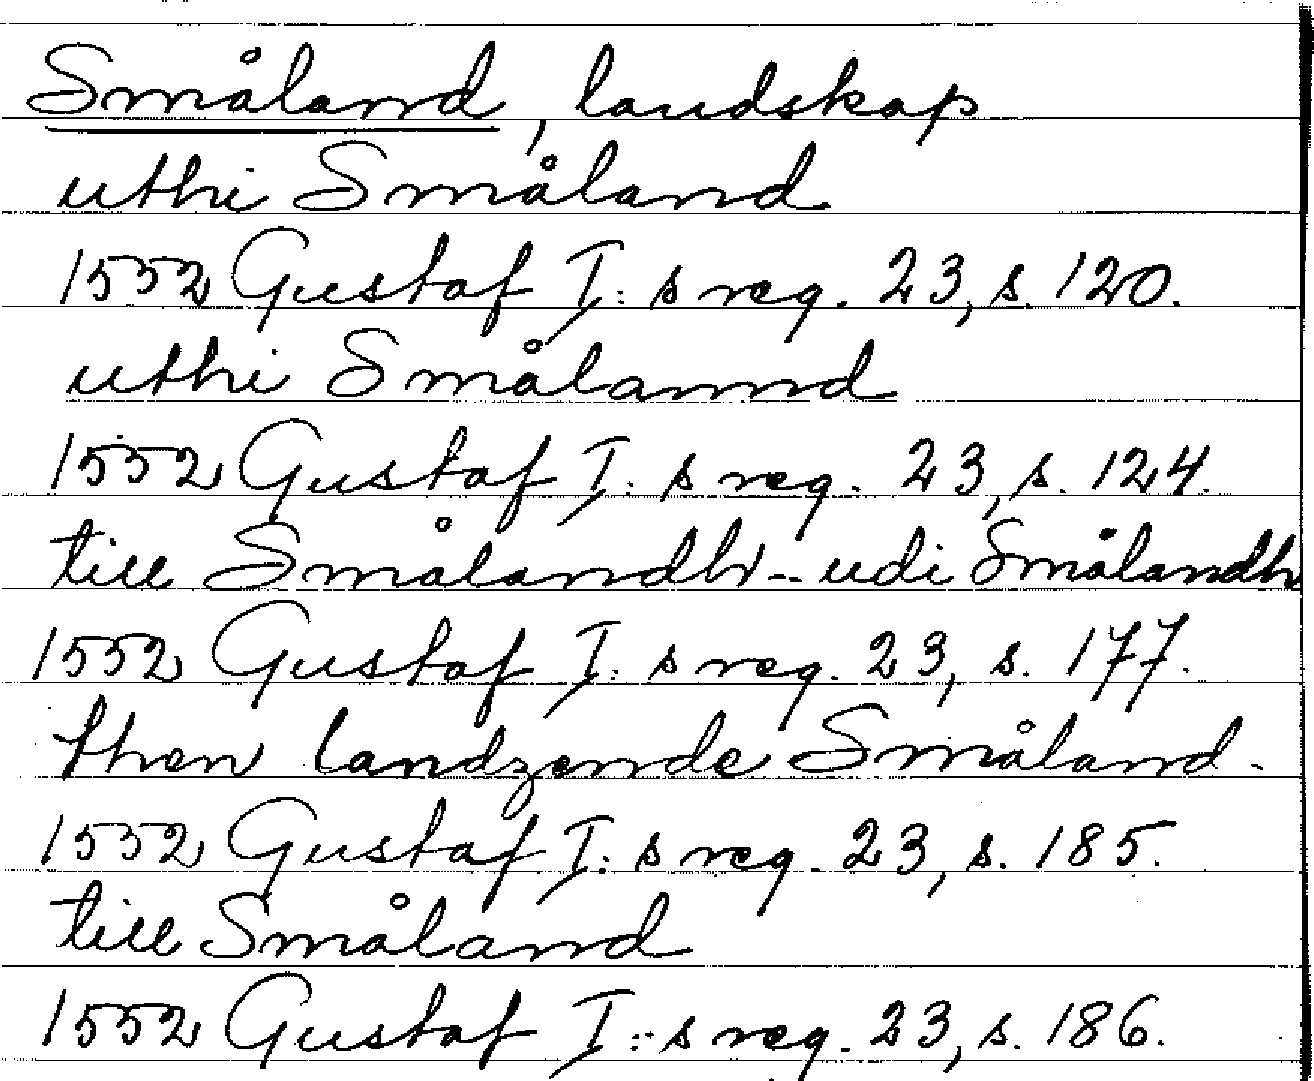 Småland, landskap
uthi Småland
1552 Gustaf I:s reg. 23, s. 120.
uthi Smålannd
1552 Gustaf I:s reg. 23, s. 124.
till Smålandh -- udi Smålandh
1552 Gustaf I:s reg. 23, s. 177.
then landzende Småland.
1552 Gustaf I:s reg. 23, s. 185.
till Småland
1552 Gustaf I:s reg. 23, s. 186.